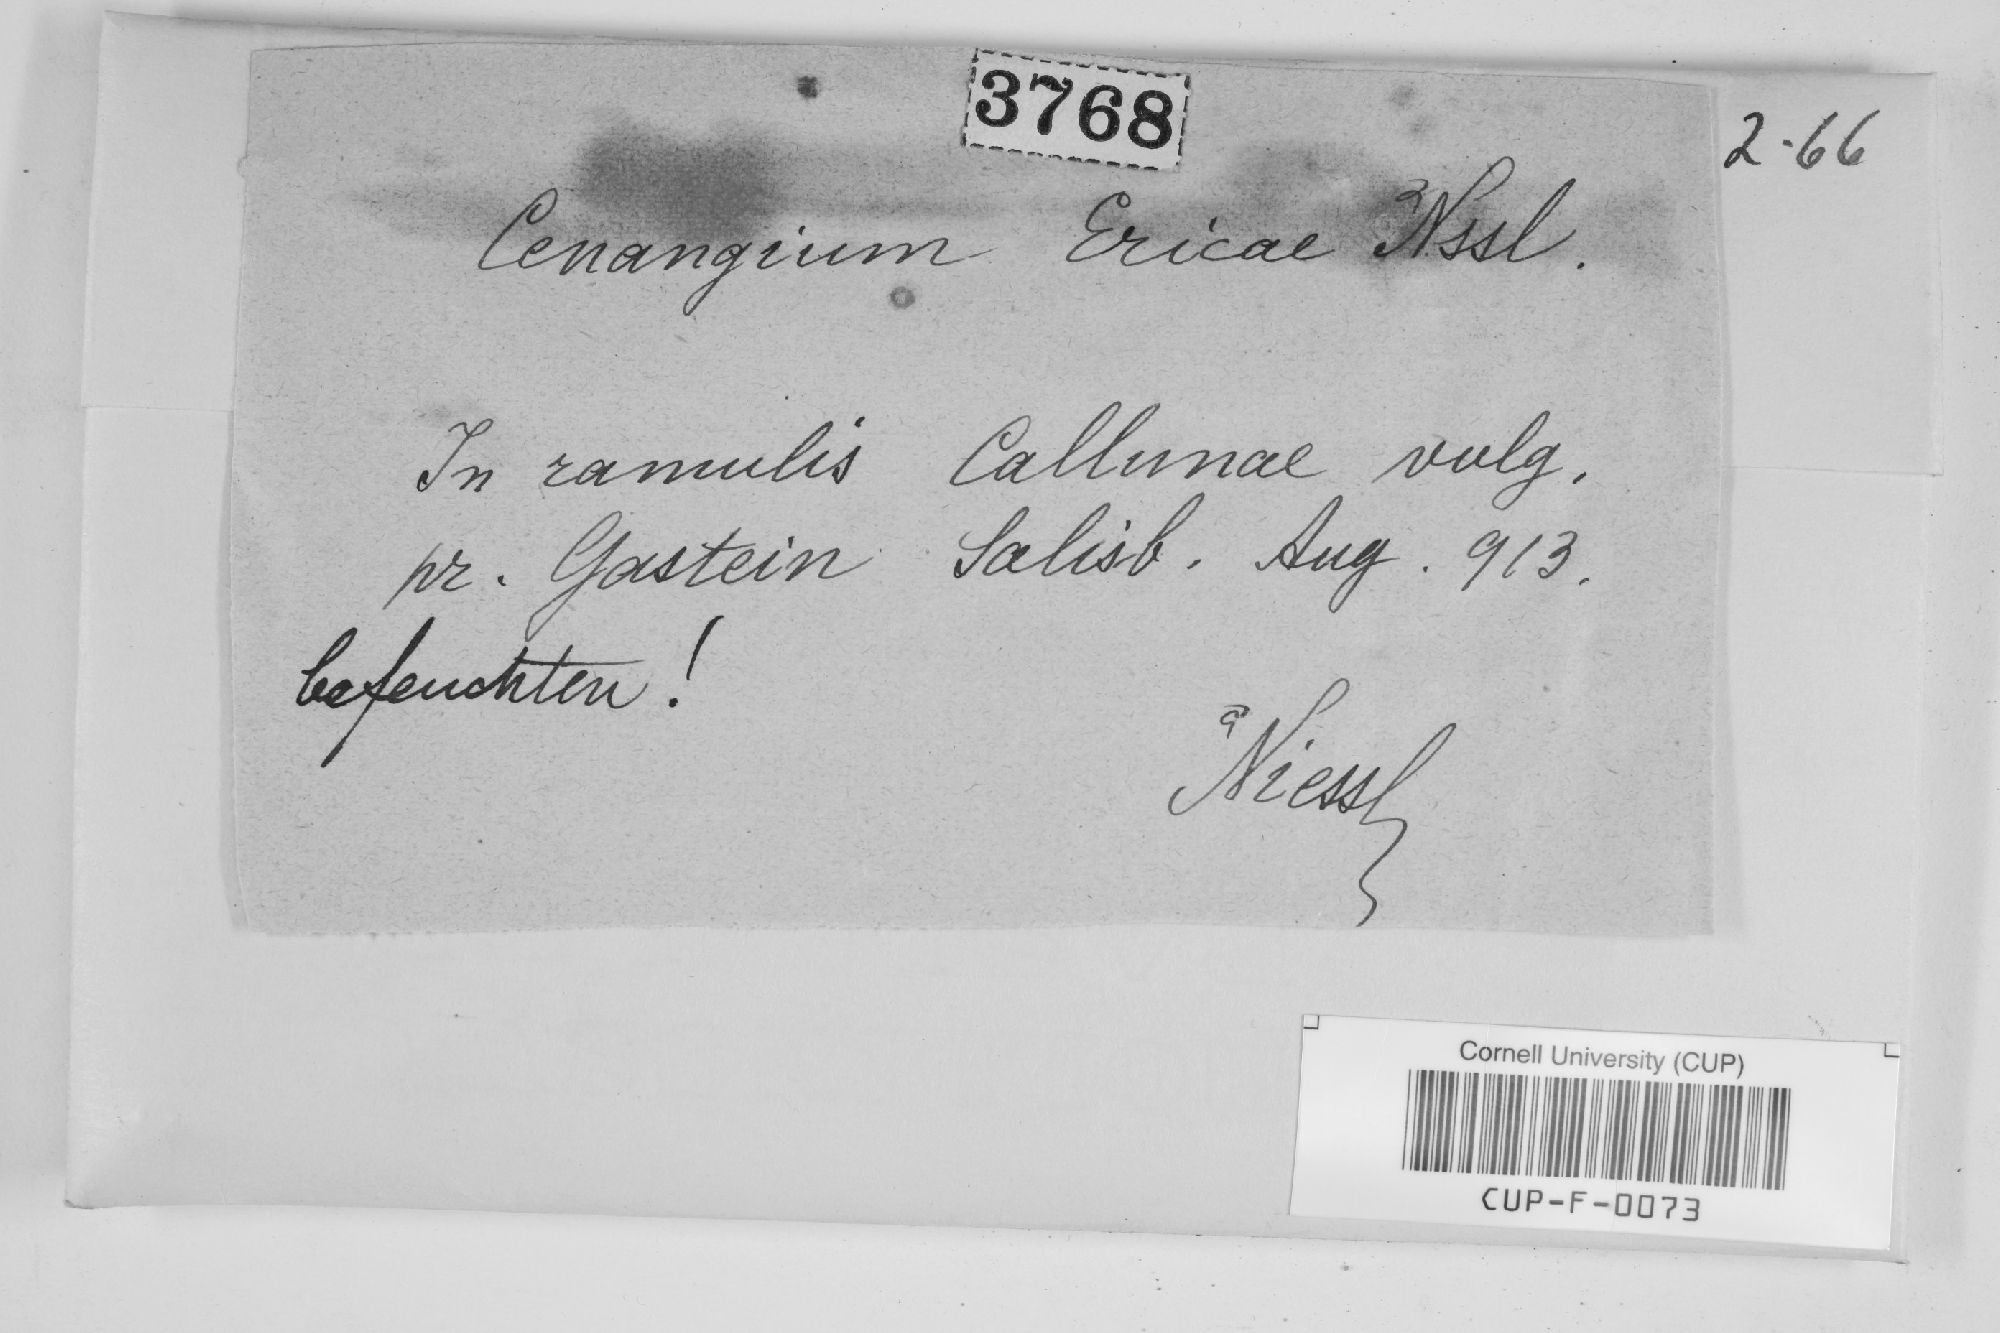 3768
2-66
Cenangium Ericae Nssl.
In ramulis Callunae vulg.
pr. Gastein Salisb. Aug. 913.
befeuchten!
Niessl
Cornell University (CUP)
CUP-F-0073